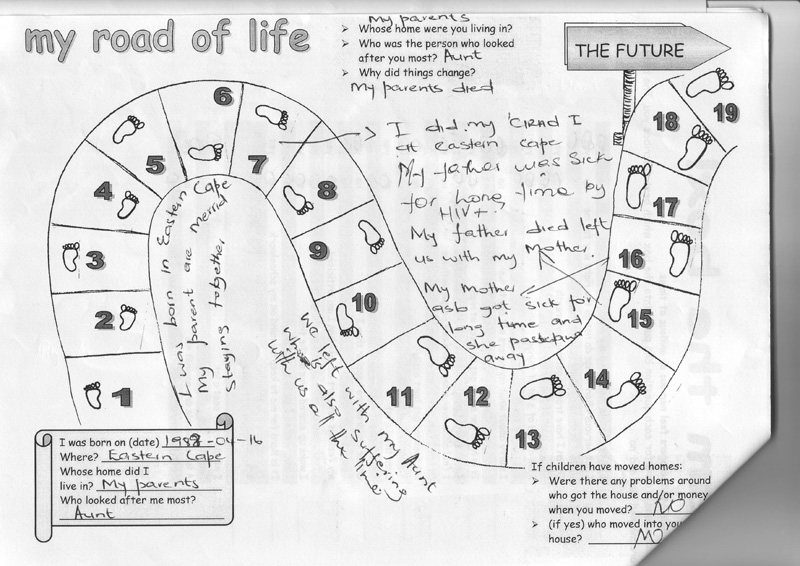 my road of life
My parents
➢ Whose home were you living in?
➢ Who was the person who looked
after you most? Aunt
➢ Why did things change?
My parents died
THE FUTURE
1
2
3
4
5
6
7
8
9
10
11
12
13
14
15
16
17
18
19
I was born in Eastern Cape
My parent are Merrid
Staying together.
I did my I
at eastern cape
My father was sick
for long time by
HIV+.
My father died left
us with my Mother.
My Mother
got sick for
long time and
she
away
We left with my Aunt
also suffering
with us all the time
I was born on (date) -04-16
Where? Eastern Cape
Whose home did I
live in? My parents
Who looked after me most?
Aunt
If children have moved homes:
➢ Were there any problems around
who got the house and/or money
when you moved? NO
➢ (if yes) who moved into
house? NO